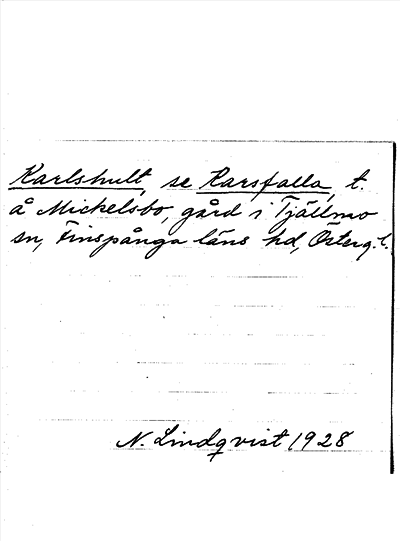 Karlshult, se Karsfalla, t.
å Mickelsbo, gård i Tjällmo
sn, Finspånga läns hd, Österg. l.
N. Lindqvist 1928